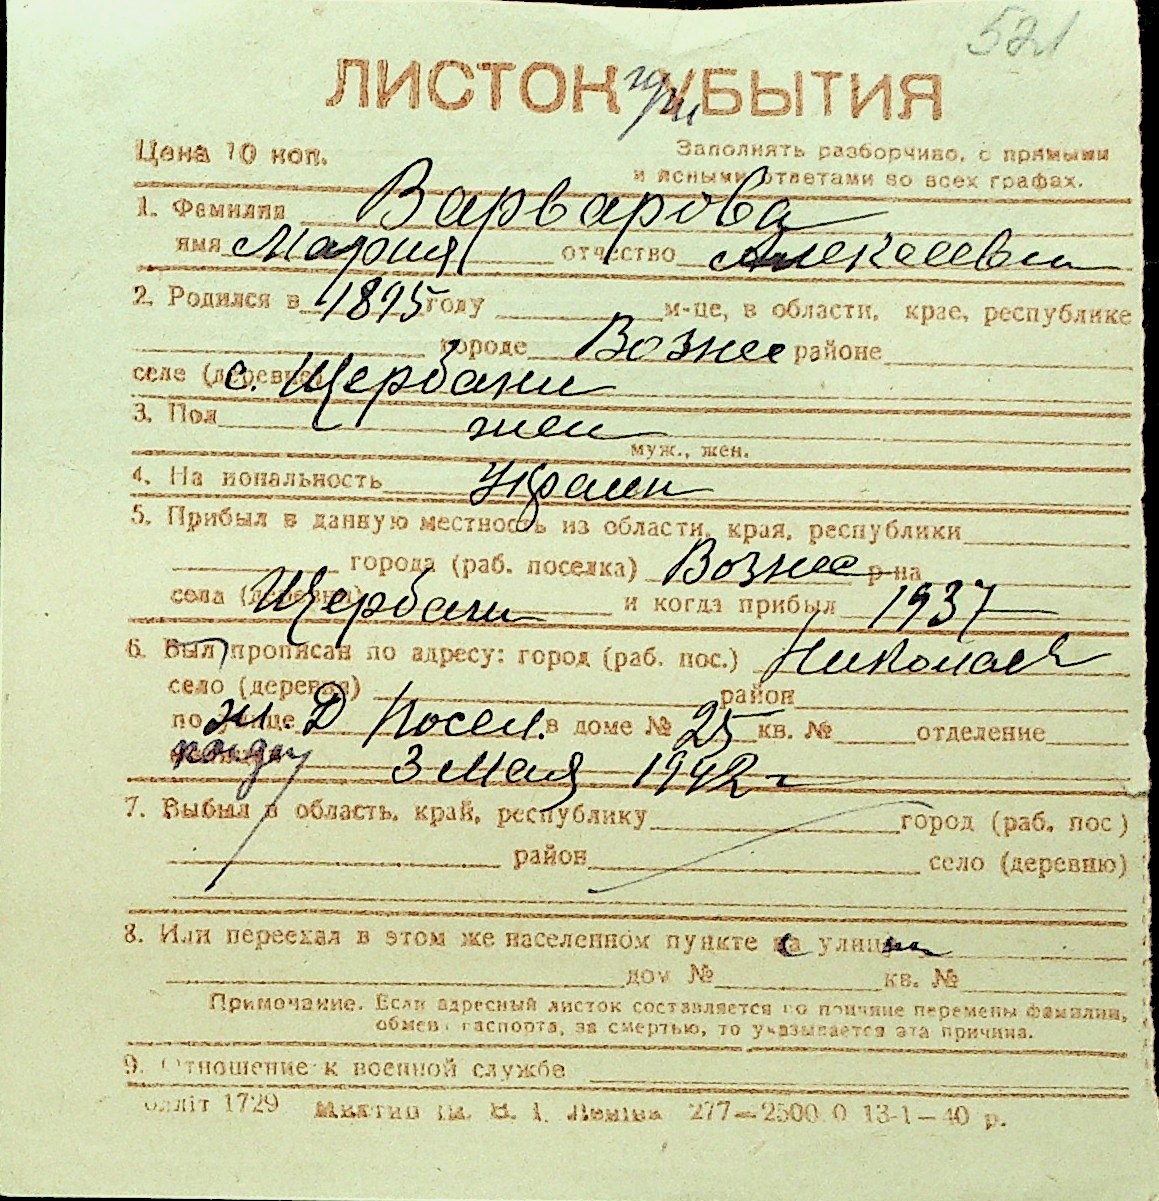 521
ЛИСТОК УБЫТИЯ
Цена 10 коп.
Заполнять разборчиво, с прямыми
и ясными ответами во всех графах.
1. Фамилия Варварова
имя Мария отчество Алексеевн
2. Родился в 1895 году м-це, в области, крае, республике
городе Вознес районе
селе (деревне) с. Щербани
3. Пол жен
муж., жен.
4. Национальность Украин
5. Прибыл в данную местность из области, края, республики
города (раб. поселка) Вознес р-на
села (деревни) Щербани и когда прибыл 1937
6. Был прописан по адресу: город (раб. пос.) Николаев
село (деревня) район
по улице Посел. в доме № 25 кв. № отделение
3 Мая 1942 г
7. Выбыл в область, край, республику город (раб. пос)
район село (деревню)
8. Или переехал в этом же населенном пункте на улицу
дом № кв. №
Примечание. Если адресный листок составляется по причине перемены фамилии,
обмена паспорта, за смертью, то указывается эта причина.
9. Отношение к военной службе
1729 277—2500 0 13-1—40 р.